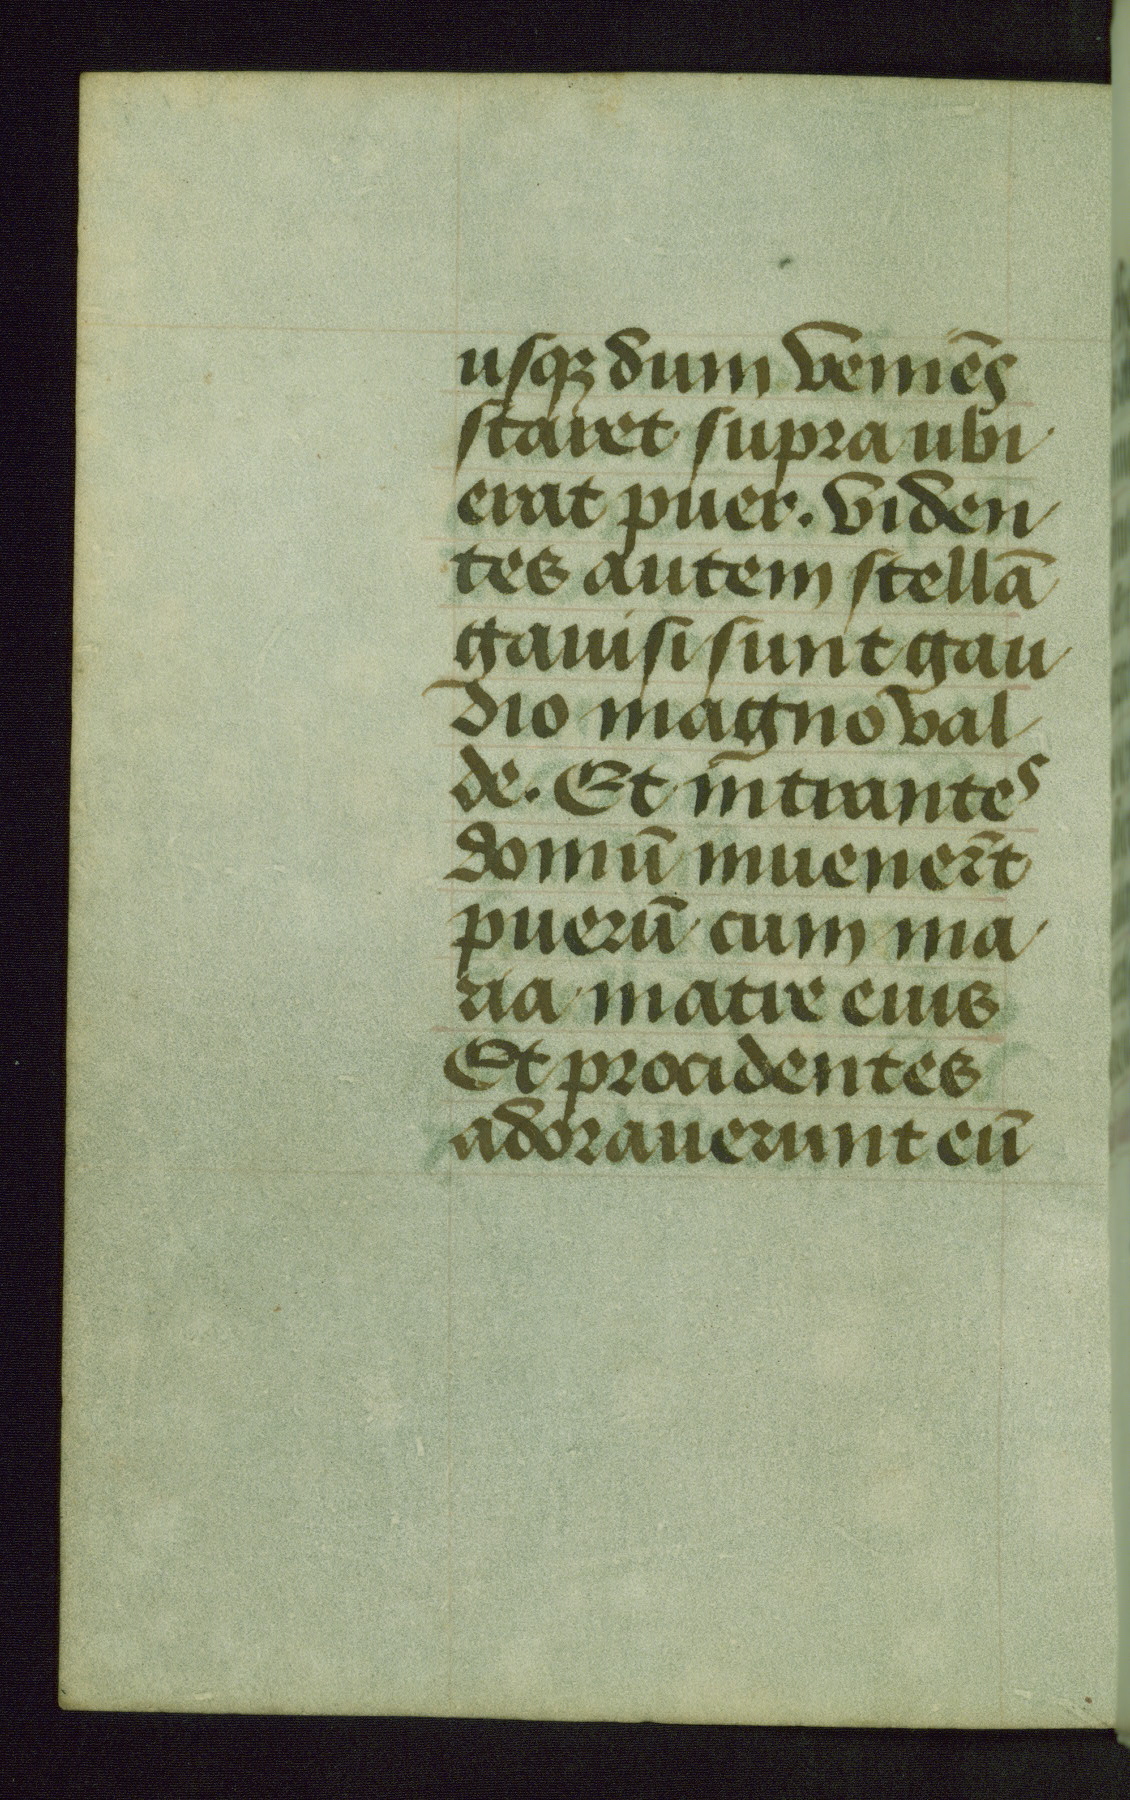 usqꝫ dum veniēs
staret supra ubi
erat puer. viden
tes autem stellā
gauisi sunt gau
dio magno val
de. Et intrantes
domū inuenert̄
puerū cum ma
ria matre eius
Et procidentes
adorauerunt eū